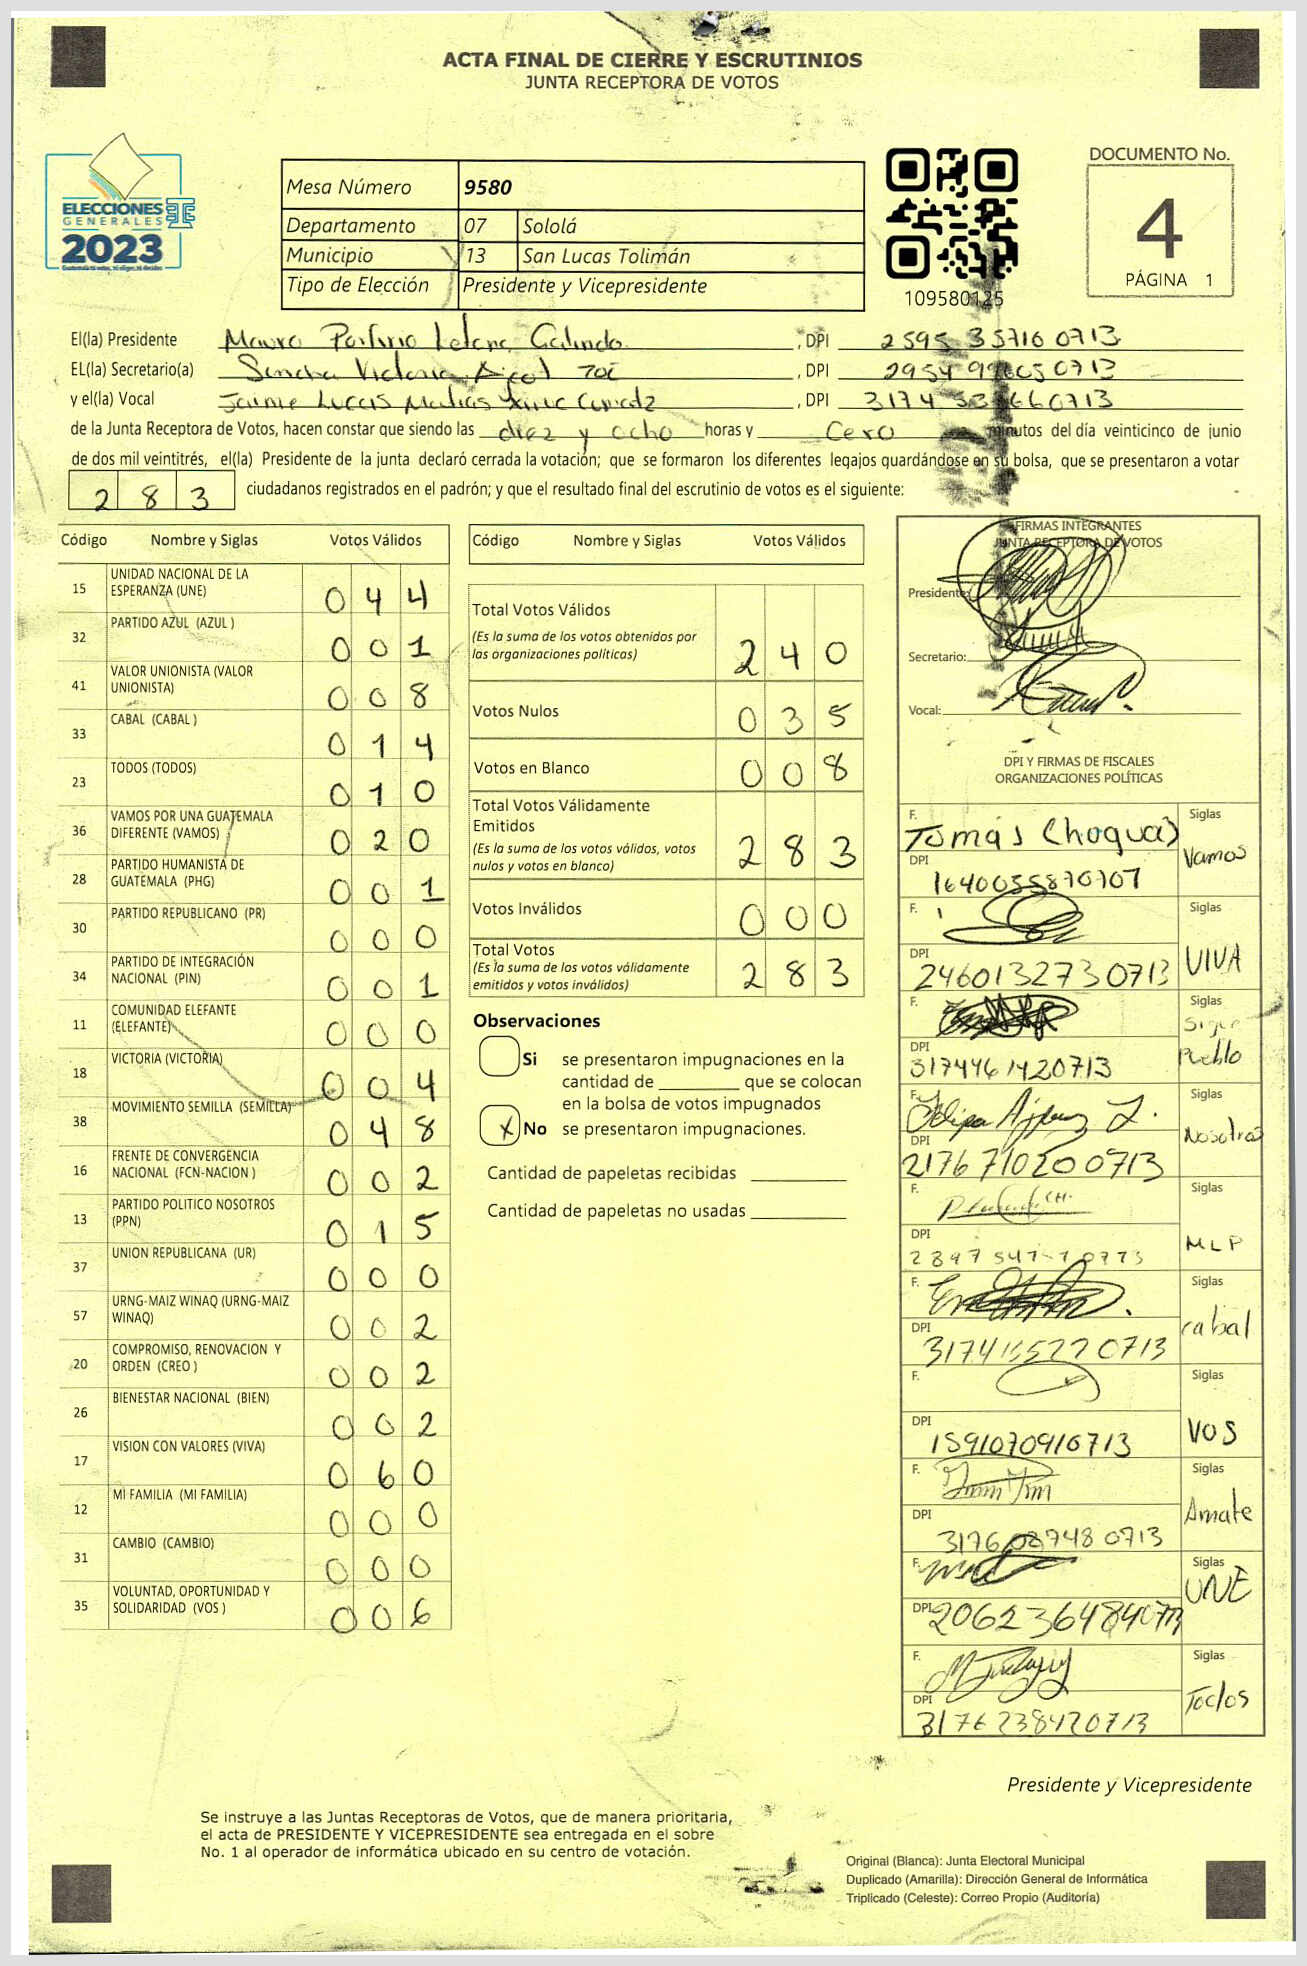 ACTA FINAL DE CIERRE Y ESCRUTINIOS
JUNTA RECEPTORA DE VOTOS
ELECCIONES
GENERALES
2023
Mesa Número 9580
Departamento 07 Sololá
Municipio 13 San Lucas Tolimán
Tipo de Elección Presidente y Vicepresidente
109580125
DOCUMENTO No.
4
PÁGINA 1
El(la) Presidente Mauro Porfirio Letona Galindo, DPI 2595 35716 0713
EL(la) Secretario(a) Sandra Victoria, DPI
y el(la) Vocal Jaime Lucas Matias, DPI 3174
de la Junta Receptora de Votos, hacen constar que siendo las diez y ocho horas y Cero minutos del día veinticinco de junio
de dos mil veintitrés, el(la) Presidente de la junta declaró cerrada la votación; que se formaron los diferentes legajos guardándose en su bolsa, que se presentaron a votar
283 ciudadanos registrados en el padrón; y que el resultado final del escrutinio de votos es el siguiente:
Código Nombre y Siglas Votos Válidos
15 UNIDAD NACIONAL DE LA ESPERANZA (UNE) 044
32 PARTIDO AZUL (AZUL ) 001
41 VALOR UNIONISTA (VALOR UNIONISTA) 008
33 CABAL (CABAL ) 014
23 TODOS (TODOS) 010
36 VAMOS POR UNA GUATEMALA DIFERENTE (VAMOS) 020
28 PARTIDO HUMANISTA DE GUATEMALA (PHG) 001
30 PARTIDO REPUBLICANO (PR) 000
34 PARTIDO DE INTEGRACIÓN NACIONAL (PIN) 001
11 COMUNIDAD ELEFANTE (ELEFANTE) 000
18 VICTORIA (VICTORIA) 004
38 MOVIMIENTO SEMILLA (SEMILLA) 048
16 FRENTE DE CONVERGENCIA NACIONAL (FCN-NACION ) 002
13 PARTIDO POLITICO NOSOTROS (PPN) 015
37 UNION REPUBLICANA (UR) 000
57 URNG-MAIZ WINAQ (URNG-MAIZ WINAQ) 002
20 COMPROMISO, RENOVACION Y ORDEN (CREO ) 002
26 BIENESTAR NACIONAL (BIEN) 002
17 VISION CON VALORES (VIVA) 060
12 MI FAMILIA (MI FAMILIA) 000
31 CAMBIO (CAMBIO) 000
35 VOLUNTAD, OPORTUNIDAD Y SOLIDARIDAD (VOS ) 006
Código Nombre y Siglas Votos Válidos
Total Votos Válidos
(Es la suma de los votos obtenidos por
las organizaciones politicas) 240
Votos Nulos 035
Votos en Blanco 008
Total Votos Válidamente
Emitidos
(Es la suma de los votos válidos, votos
nulos y votos en blanco) 283
Votos Inválidos 000
Total Votos
(Es la suma de los votos válidamente
emitidos y votos inválidos) 283
Observaciones
Si se presentaron impugnaciones en la
cantidad de ________ que se colocan
en la bolsa de votos impugnados
X No se presentaron impugnaciones.
Cantidad de papeletas recibidas
Cantidad de papeletas no usadas
FIRMAS INTEGRANTES
JUNTA RECEPTORA DE VOTOS
Presidente:
Secretario:
Vocal:
DPI Y FIRMAS DE FISCALES
ORGANIZACIONES POLÍTICAS
F. Tomás Siglas Vamos
DPI
F. Siglas VIVA
DPI 2460132730713
F. Siglas Sigue Pueblo
DPI 3174461420713
F. Felipa Siglas Nosotros
DPI 2176710200713
F. Siglas MLP
DPI
F. Siglas cabal
DPI
F. Siglas VOS
DPI 1591070910713
F. Siglas Amate
DPI
F. Siglas UNE
DPI
F. Siglas Todos
DPI 3176238420713
Presidente y Vicepresidente
Se instruye a las Juntas Receptoras de Votos, que de manera prioritaria,
el acta de PRESIDENTE Y VICEPRESIDENTE sea entregada en el sobre
No. 1 al operador de informática ubicado en su centro de votación.
Original (Blanca): Junta Electoral Municipal
Duplicado (Amarilla): Dirección General de Informática
Triplicado (Celeste): Correo Propio (Auditoría)